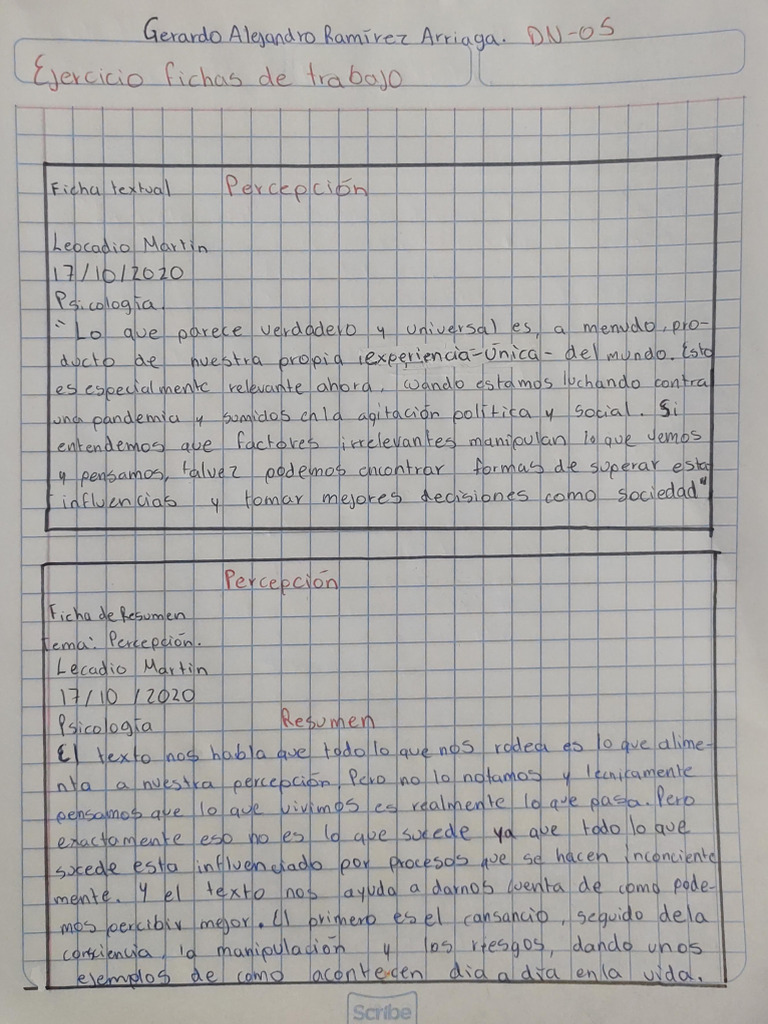 Gerardo Alejandro Ramírez Arriaga. DN-05
Ejercicio fichas de trabajo
Ficha textual Percepción
Leocadio Martin
17/10/2020
Psicología.
"Lo que parece verdadero y universal es, a menudo, pro-
ducto de nuestra propia experiencia-única- del mundo. Esto
es especialmente relevante ahora, cuando estamos luchando contra
una pandemia y sumidos en la agitación política y social. Si
entendemos que factores irrelevantes manipulan lo que vemos
y pensamos, talvez podemos encontrar formas de superar esta
influencias y tomar mejores decisiones como sociedad"
Percepción
Ficha de Resumen
Tema: Percepción.
Lecadio Martin
17/10/2020
Psicología Resumen
El texto nos habla que todo lo que nos rodea es lo que alime-
nta a nuestra percepción, Pero no lo notamos y técnicamente
pensamos que lo que vivimos es realmente lo que pasa. Pero
exactamente eso no es lo que sucede ya que todo lo que
sucede esta influenciado por procesos que se hacen inconciente
mente. Y el texto nos ayuda a darnos cuenta de como pode-
mos percibir mejor. El primero es el cansancio, seguido dela
consciencia, la manipulación y los riesgos, dando unos
ejemplos de como acontecen dia a dia en la vida.
Scribe